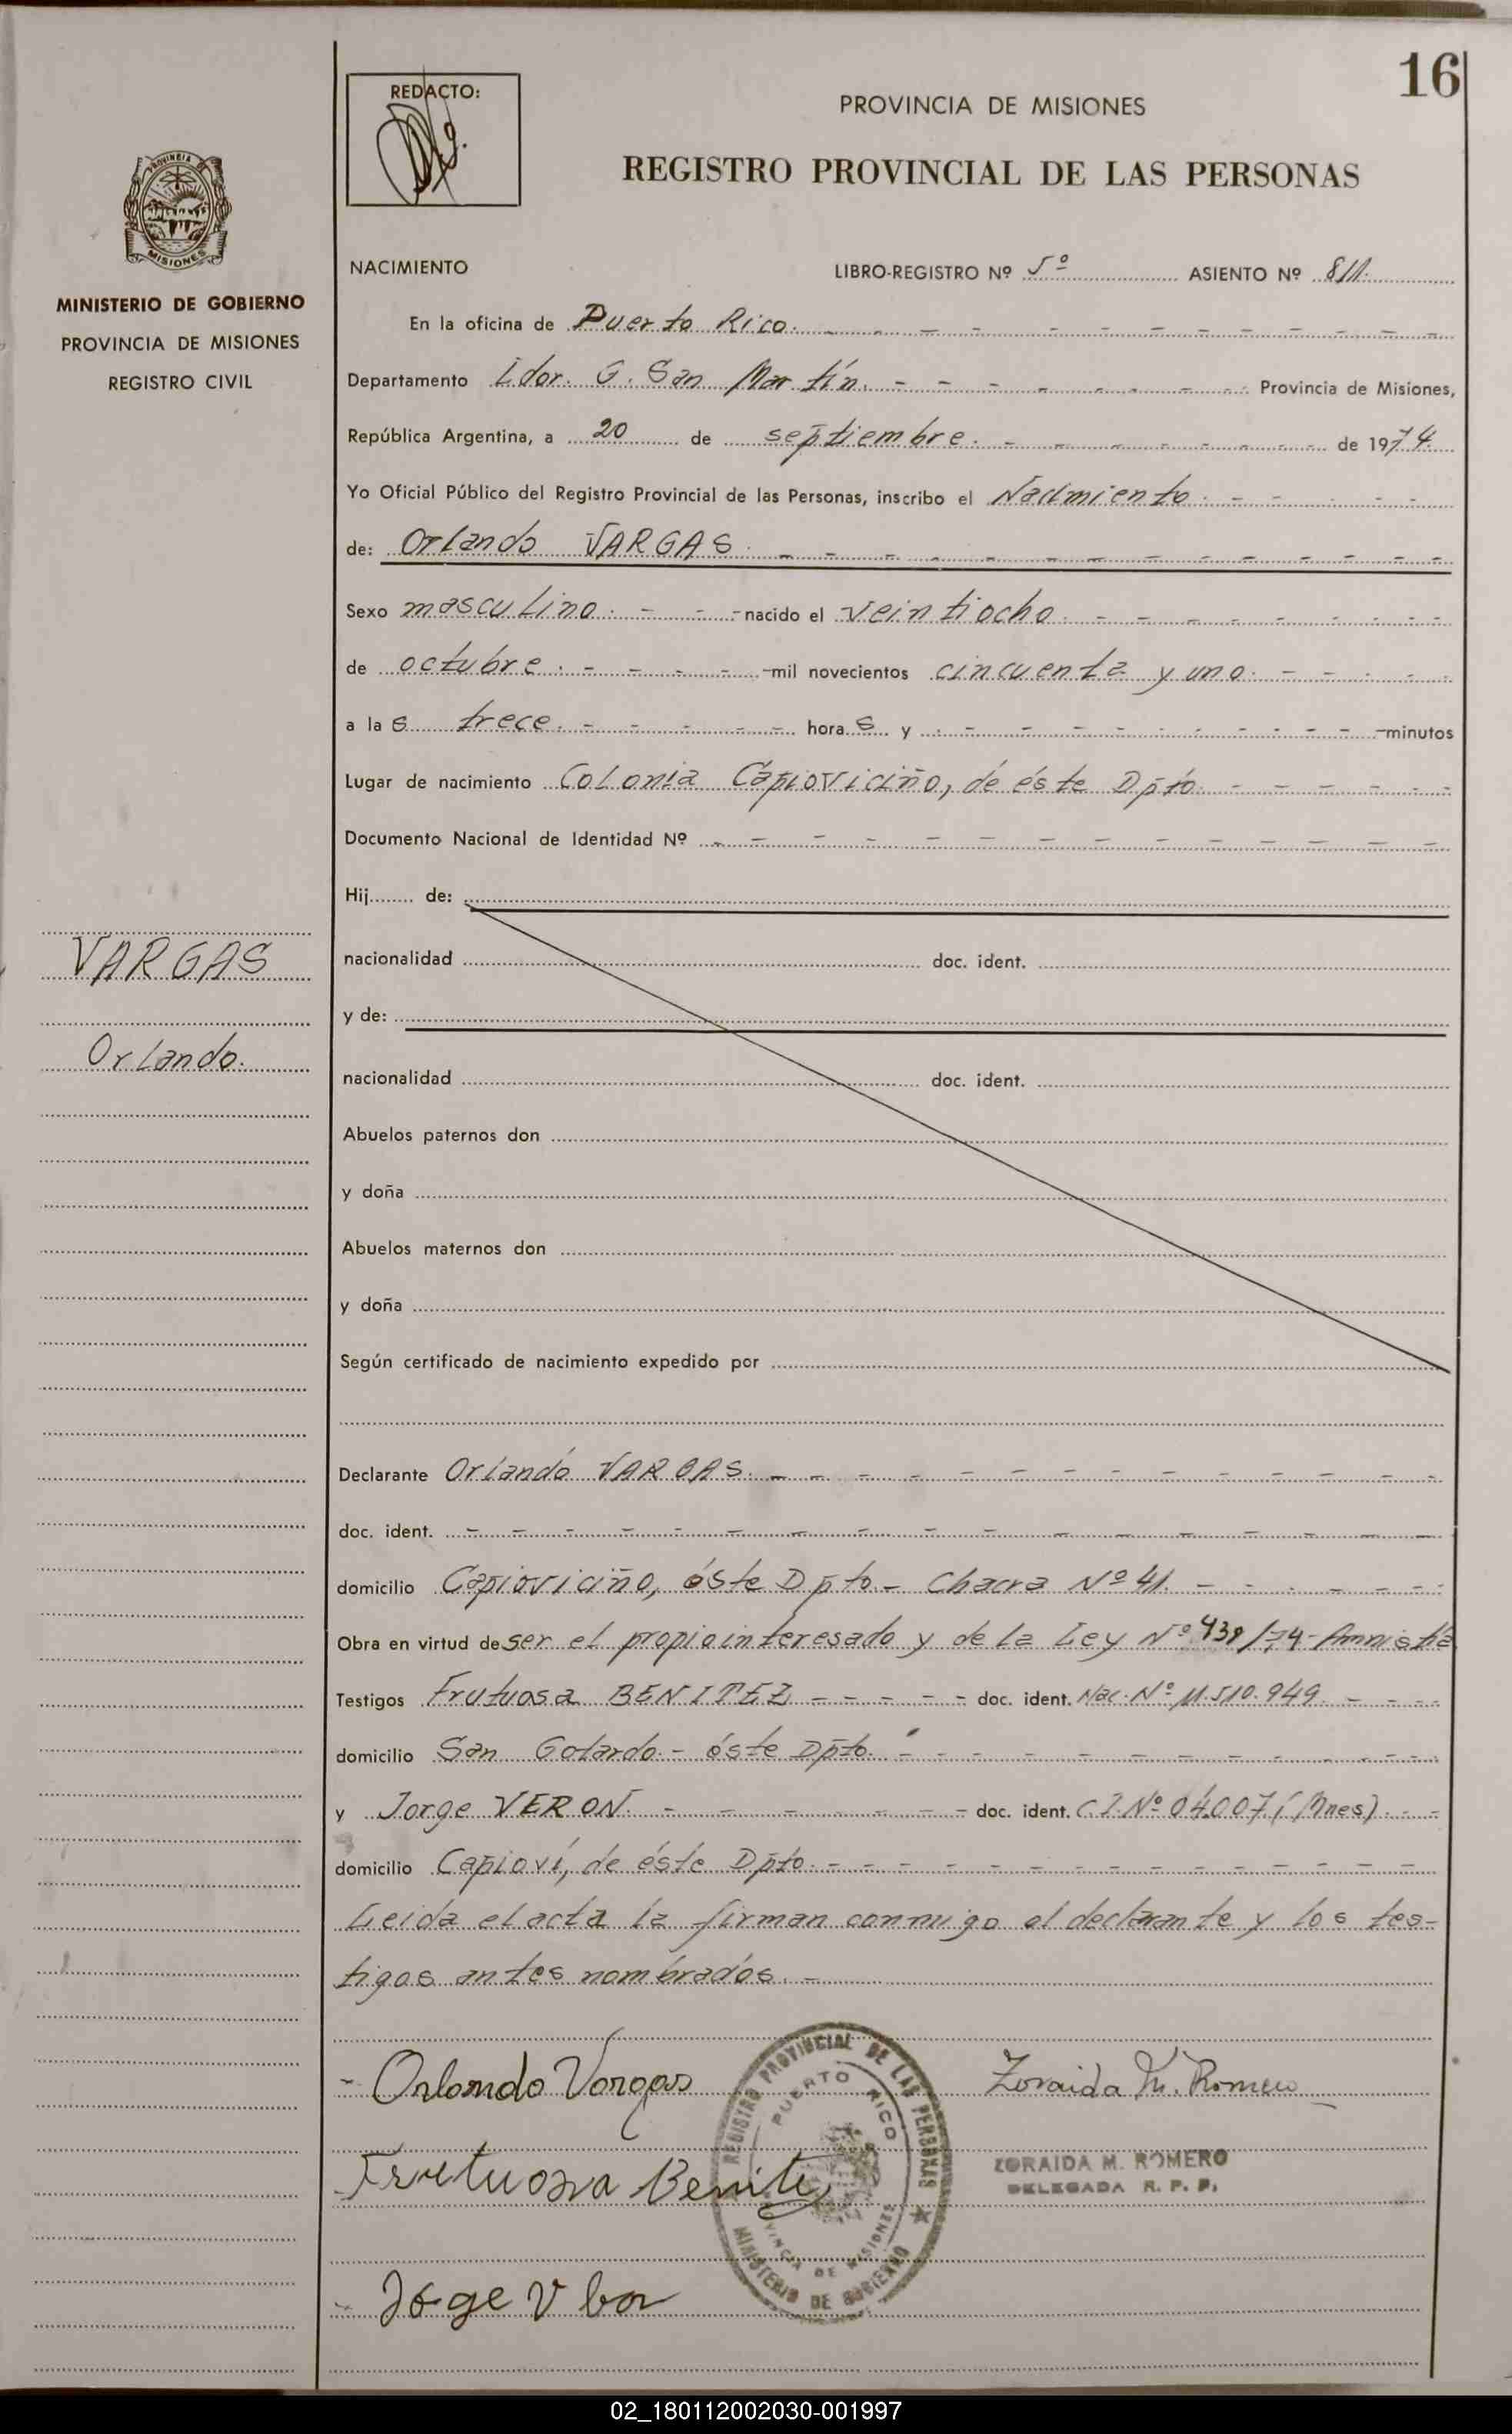 16
REDACTO:
PROVINCIA DE MISIONES
REGISTRO PROVINCIAL DE LAS PERSONAS
PROVINCIA DE
MISIONES
MINISTERIO DE GOBIERNO
PROVINCIA DE MISIONES
REGISTRO CIVIL
NACIMIENTO LIBRO-REGISTRO Nº 5º ASIENTO Nº 811.
En la oficina de Puerto Rico.
Departamento Ldor. G. San Martín. Provincia de Misiones,
República Argentina, a 20 de septiembre. de 1974.
Yo Oficial Público del Registro Provincial de las Personas, inscribo el Nacimiento.
de: Orlando VARGAS.
Sexo masculino. nacido el veintiocho.
de octubre. mil novecientos cincuenta y uno.
a las trece. horas y minutos
Lugar de nacimiento Colonia Capioviciño, de éste Dpto.
Documento Nacional de Identidad Nº
Hij de:
nacionalidad doc. ident.
y de:
nacionalidad doc. ident.
Abuelos paternos don
y doña
Abuelos maternos don
y doña
Según certificado de nacimiento expedido por
VARGAS
Orlando.
Declarante Orlando VARGAS.
doc. ident.
domicilio Capioviciño, éste Dpto - Chacra Nº 41.
Obra en virtud de ser el propio interesado y de la Ley Nº 438/74-Amnistía
Testigos Frutuosa BENITEZ doc. ident. Nac. Nº 11.510.949.
domicilio San Gotardo. - éste Dpto.
y Jorge VERON. doc. ident. C.I. Nº (Mnes).
domicilio Capioví, de éste Dpto.
Leida el acta la firman conmigo el declarante y los tes-
tigos antes nombrados. -
- Orlando Vargas
Zoraida M. Romero
REGISTRO PROVINCIAL DE LAS PERSONAS
PUERTO RICO
PROVINCIA DE MISIONES
MINISTERIO DE GOBIERNO
ZORAIDA M. ROMERO
DELEGADA R. P. P.
Frutuosa Benite
- Joge
02_180112002030-001997